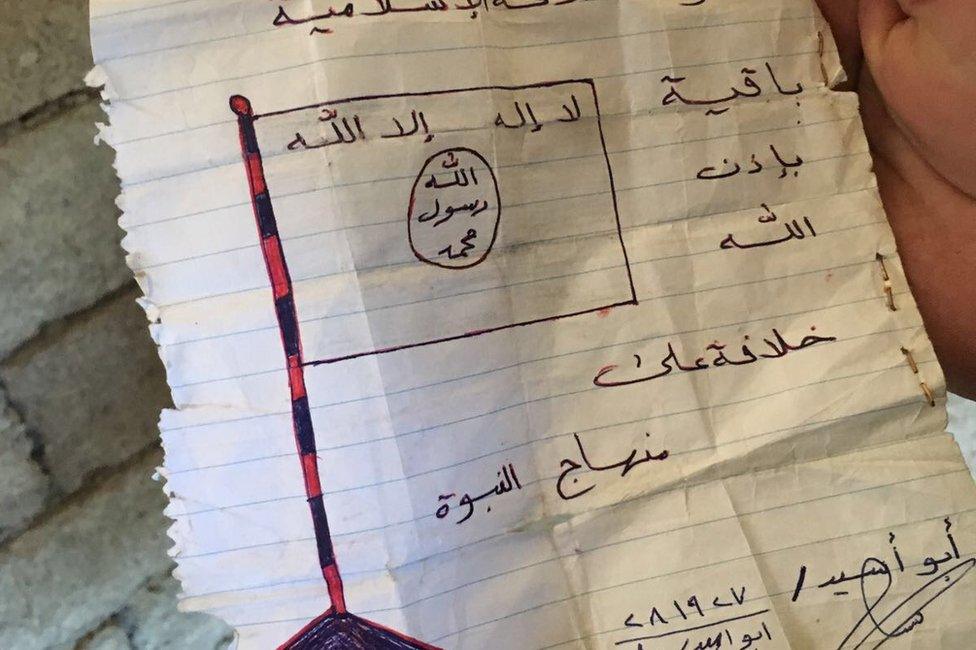 الإسلامية
باقية
بإذن
الله
لا إله إلا الله
الله
رسول
محمد
خلافة على
منهاج النبوة
أبو أسيد /
٢٨١٩٢٧